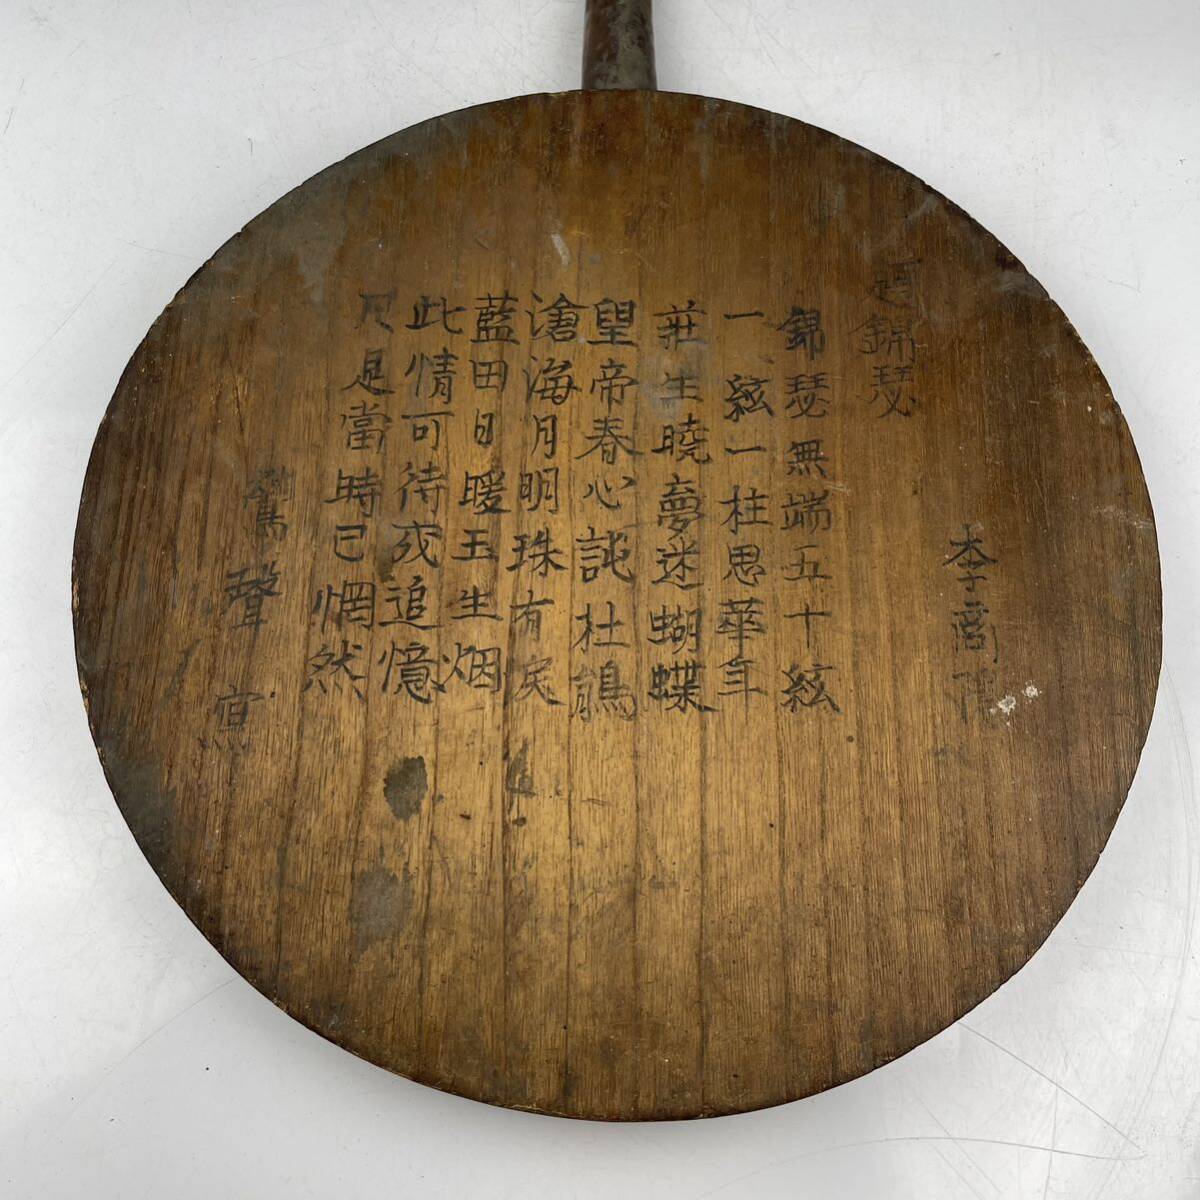 錦瑟
李商隱
錦瑟無端五十絃
一絃一柱思華年
莊生曉夢迷蝴蝶
望帝春心託杜鵑
滄海月明珠有淚
藍田日暖玉生烟
此情可待成追憶
只是當時已惘然
鶯聲寫